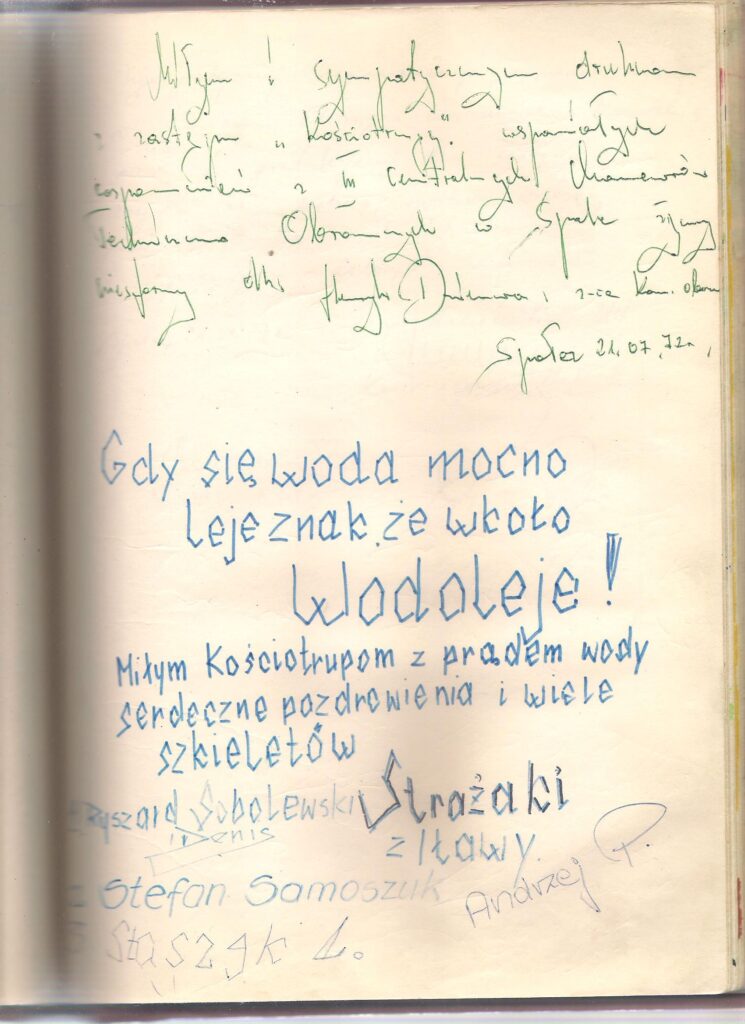 Miłym i sympatycznym druhnom
z zastępu „Kościotrupy" wspaniałych
wspomnień z III Centralnych Manewrów
Techniczno Obronnych w Spale życzy
dh. Henryk i z-ca Kom. obozu
Spała 21.07.72r.,
Gdy się woda mocno
leje znak, że wkoło
Wodoleje!
Miłym Kościotrupom z prądem wody
serdeczne pozdrowienia i wiele
szkieletów
Ryszard Sobolewski Strażaki
Denis
z Iławy.
Stefan Samoszuk
Andrzej P.
Staszek L.